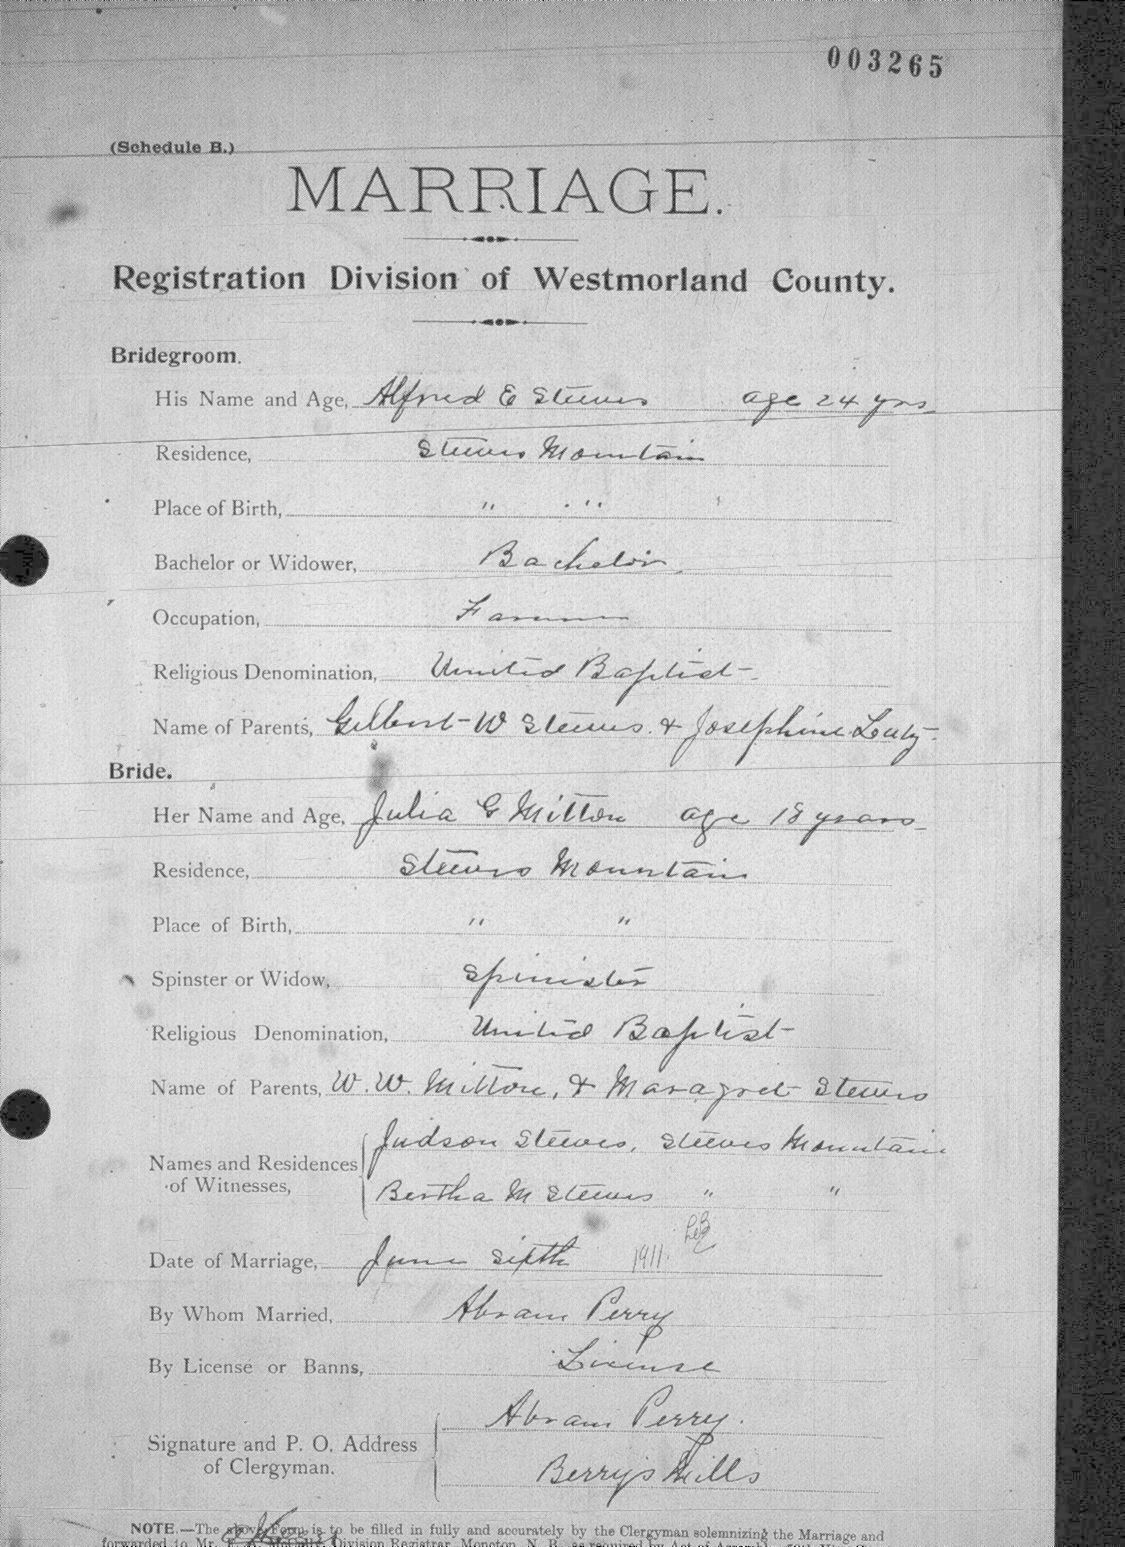 003265
(Schedule B.)
MARRIAGE.
Registration Division of Westmorland County.
Bridegroom.
His Name and Age, Alfred E Steeves age 24 yrs
Residence, Steeves Mountain
Place of Birth, " "
Bachelor or Widower, Bachelor
Occupation, Farmer
Religious Denomination, United Baptist
Name of Parents, Gilbert W Steeves & Josephine Lutz
Bride.
Her Name and Age, Julia G Mitton age 18 years
Residence, Steeves Mountain
Place of Birth, " "
Spinster or Widow, Spinister
Religious Denomination, United Baptist
Name of Parents, W. W. Mitton, & Maragret Steeves
Names and Residences of Witnesses, Judson Steeves, Steeves Mountain
Bertha M Steeves " "
Date of Marriage, June sixth 1911
By Whom Married, Abram Perry
By License or Banns, License
Signature and P. O. Address of Clergyman. Abram Perry.
Berry's Mills
NOTE.—The above Form is to be filled in fully and accurately by the Clergyman solemnizing the Marriage and
forwarded to Mr. Division Registrar, Moncton, N. B. as required by Act of